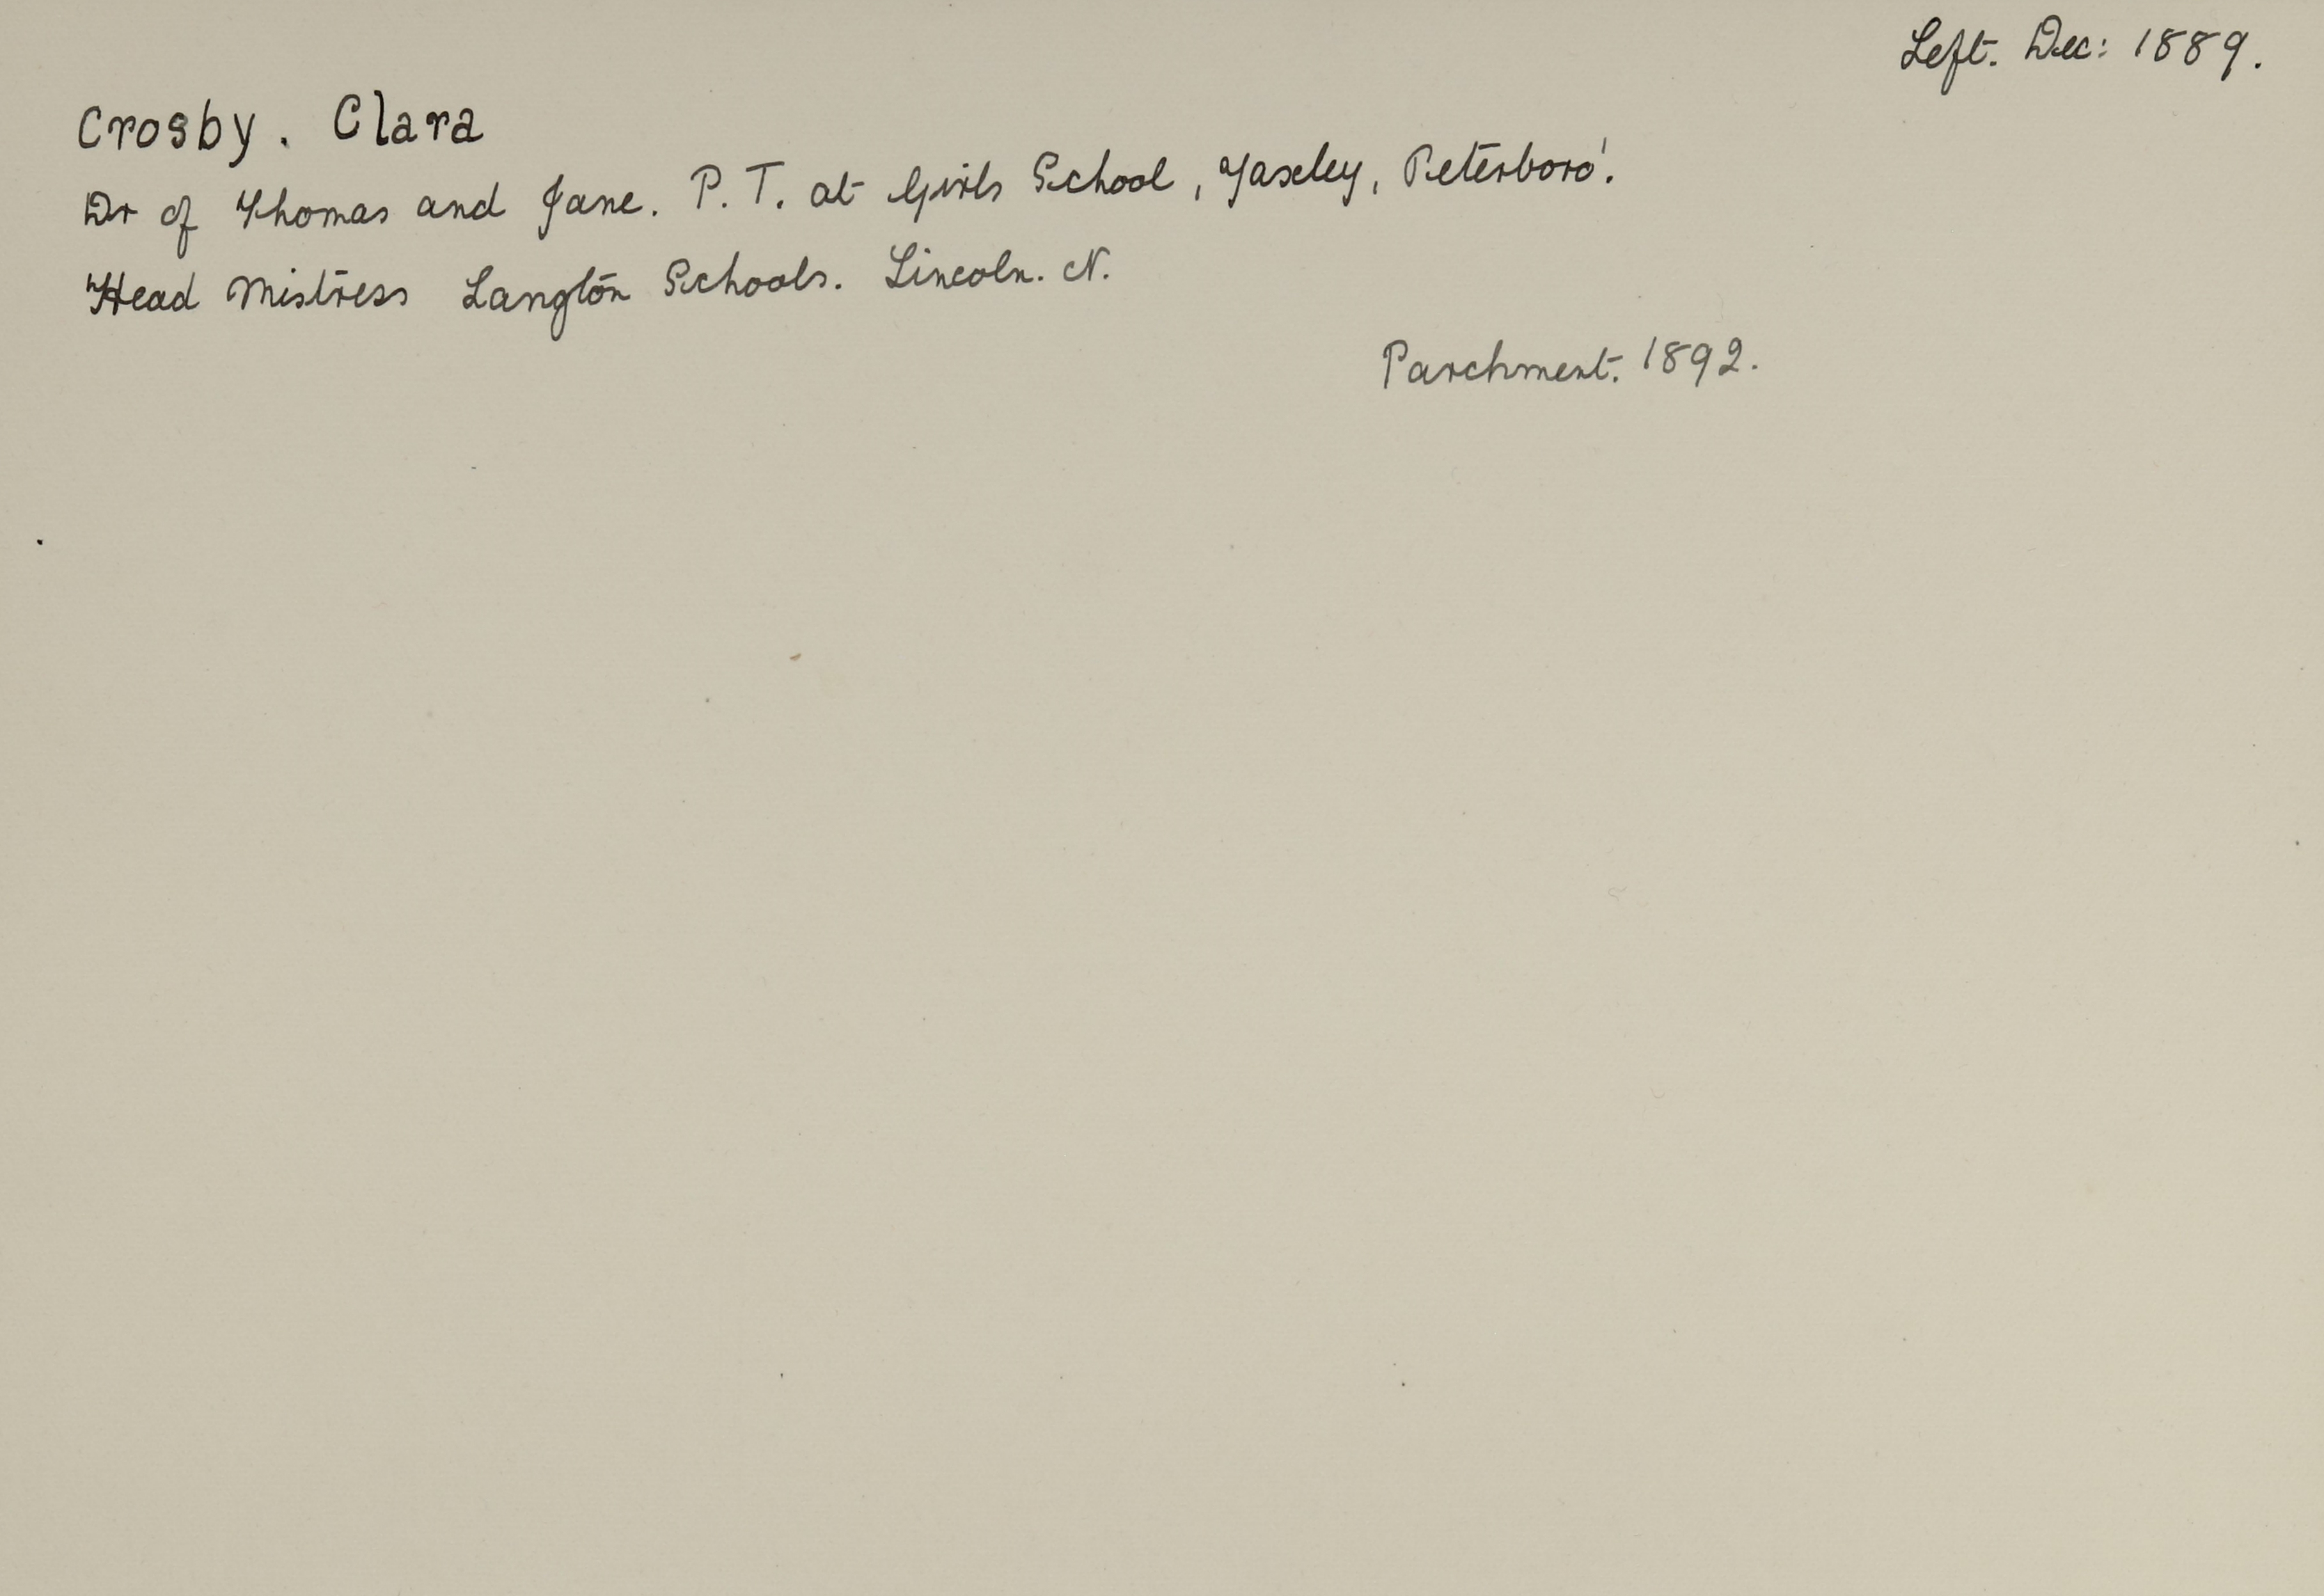 Left. Dec: 1889.
Crosby. Clara
Dr of Thomas and Jane. P. T. at Girls School, Yaxley, Peterboro'.
Head Mistress Langton Schools. Lincoln. N.
Parchment. 1892.